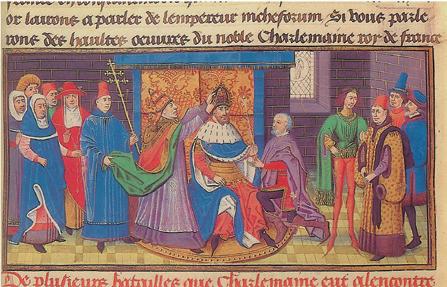 or lairons a parler de lempereur micheforum, Si vous parle
rons des haultes oeuvres du noble Charlemaine roy de france
De plusieurs batailles que Charlemaine eut alencontre